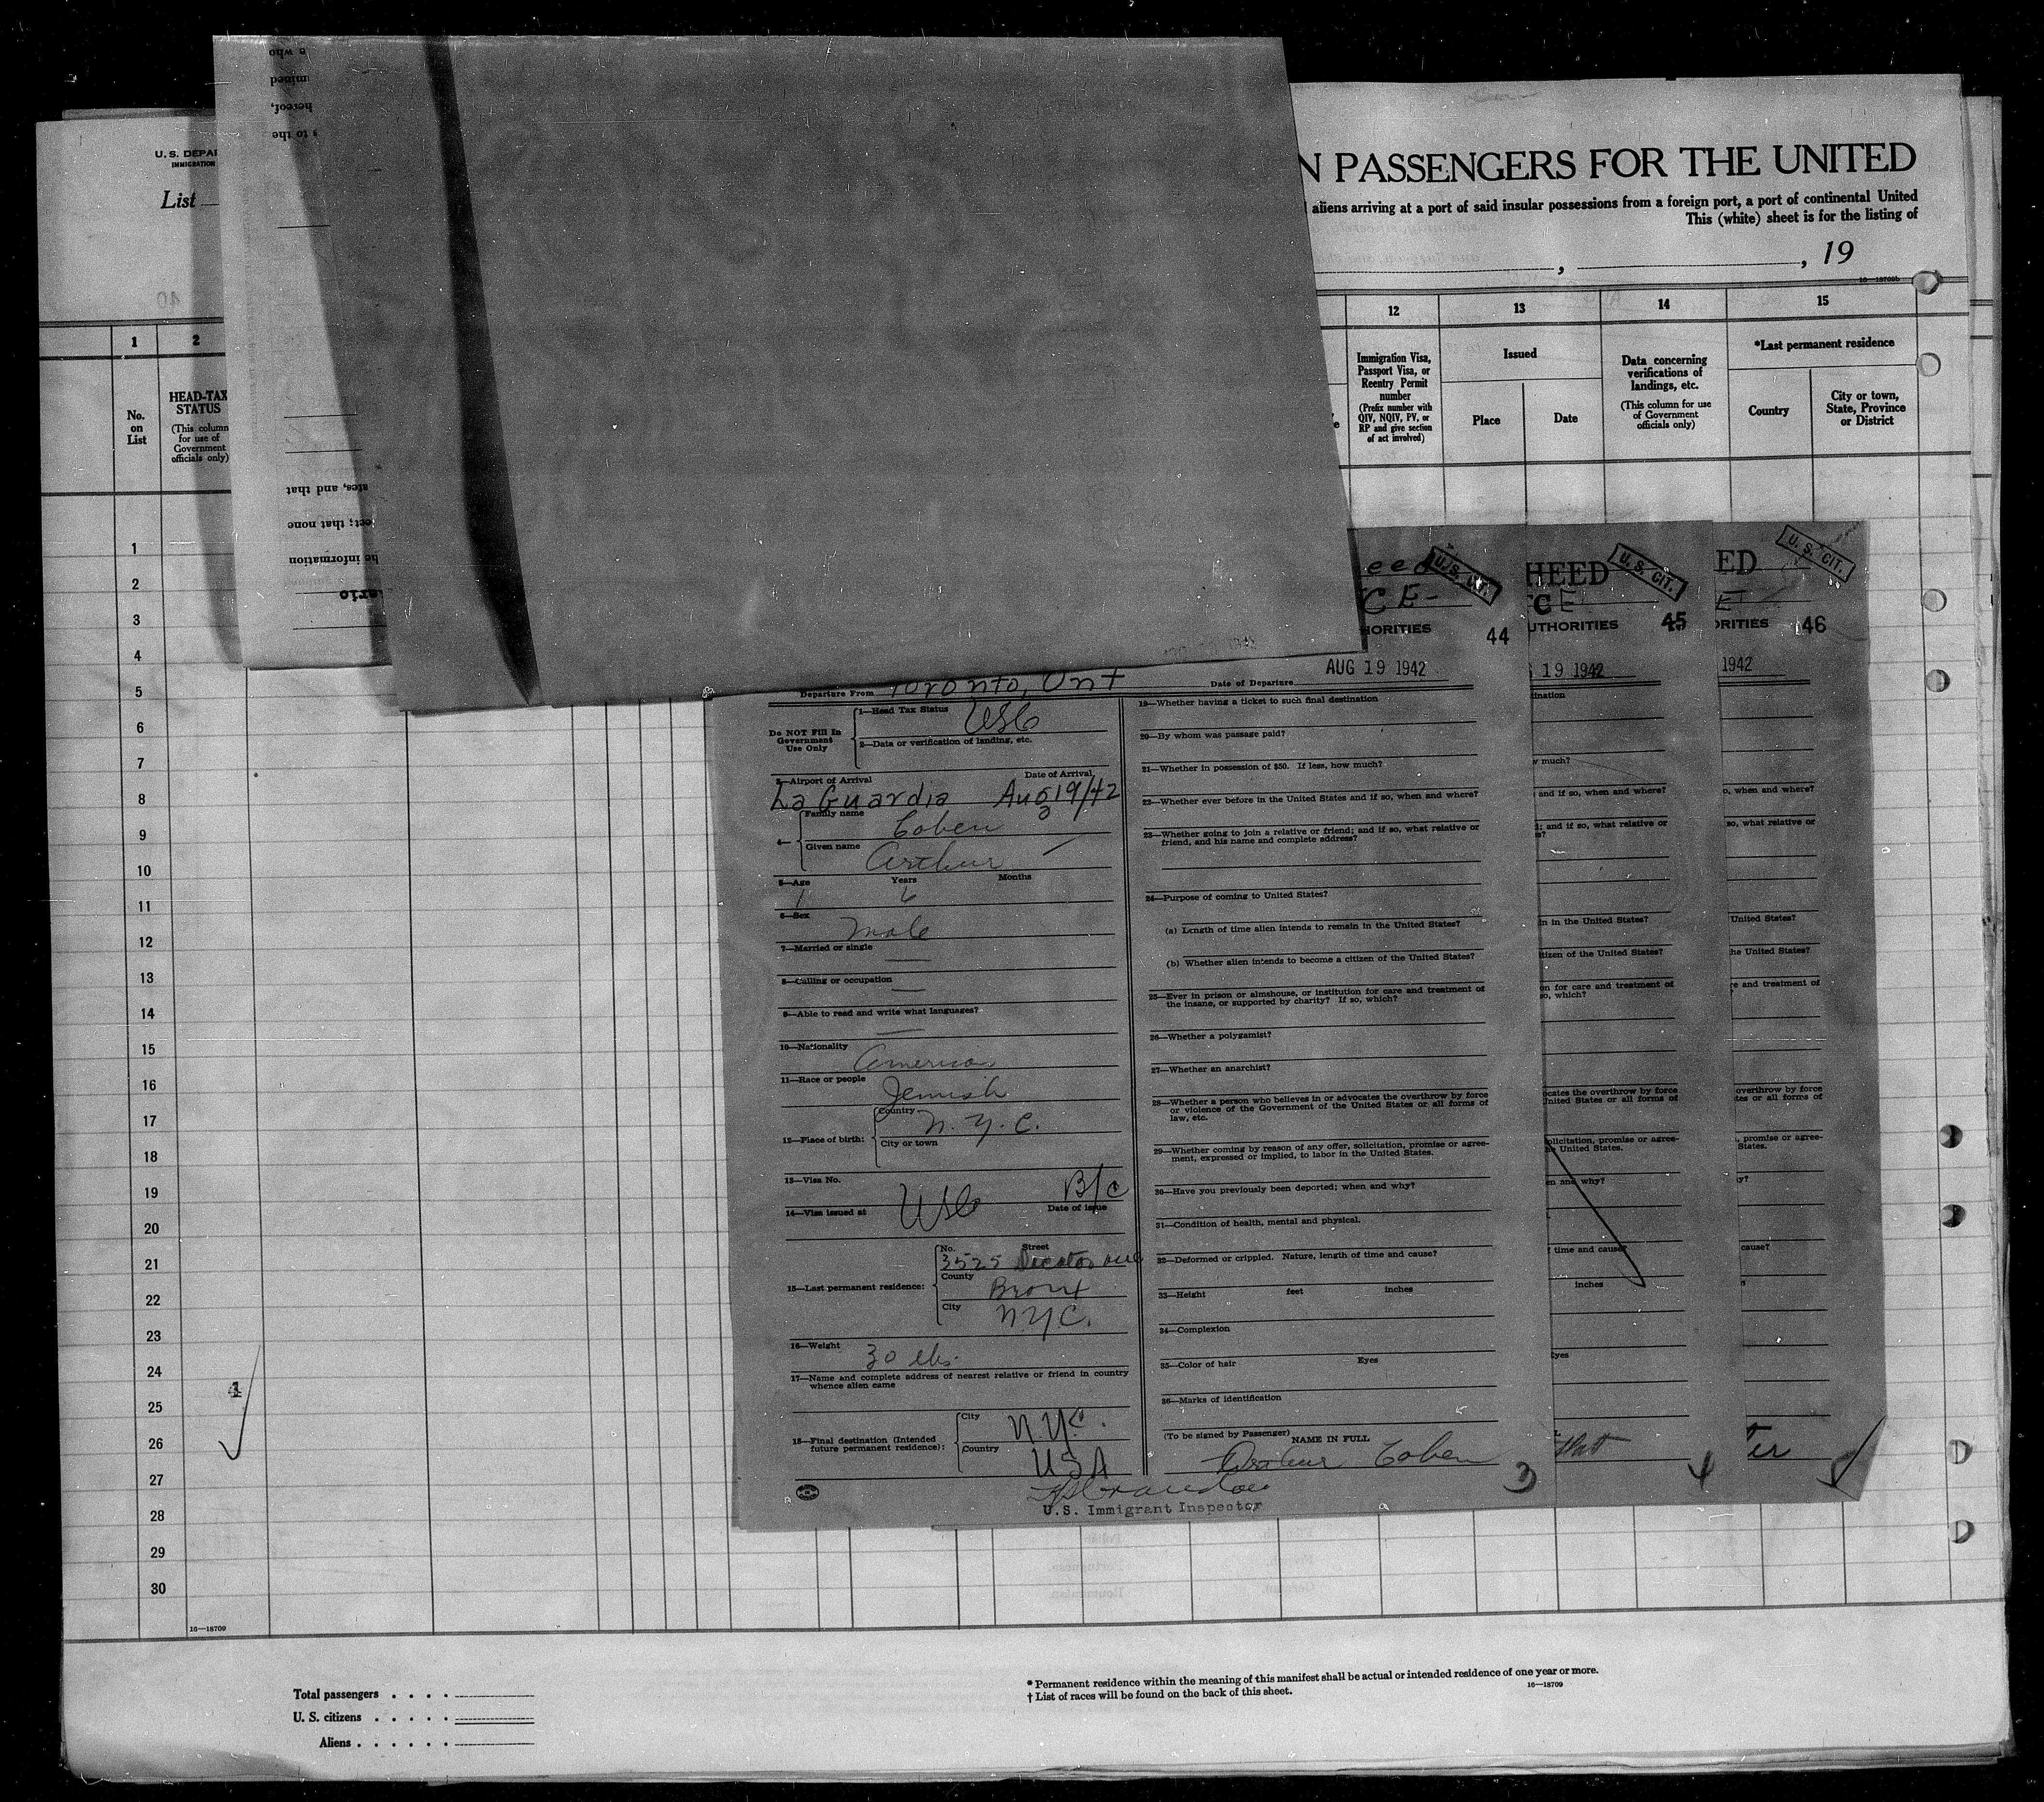 U. S. DEPAR
IMMIGRATION
List
e who
mined
hereof,
s to the
ates, and that
ect; that none
he information
tario
N PASSENGERS FOR THE UNITED
aliens arriving at a port of said insular possessions from a foreign port, a port of continental United
This (white) sheet is for the listing of
, , 19
1 2 12 13 14 15
No. on List
HEAD-TAX STATUS
(This column for use of Government officials only)
Immigration Visa, Passport Visa, or Reentry Permit number
(Prefix number with QIV, NQIV, PV, or RP and give section of act involved)
Issued
Place Date
Data concerning verifications of landings, etc.
(This column for use of Government officials only)
*Last permanent residence
Country
City or town, State, Province or District
1
2
3
4
5
6
7
8
9
10
11
12
13
14
15
16
17
18
19
20
21
22
23
24
25
26
27
28
29
30
4
16—18709
U. S. CIT.
CE-
HORITIES 44
AUG 19 1942
Departure From Toronto, Ont Date of Departure
Do NOT Fill In Government Use Only
1—Head Tax Status USC
2—Data or verification of landing, etc.
3—Airport of Arrival Date of Arrival
La Guardia Aug 19/42
4—
Family name Cohen
Given name Arthur
5—Age Years Months
1 6
6—Sex
Male
7—Married or single
—
8—Calling or occupation
—
9—Able to read and write what languages?
—
10—Nationality
American
11—Race or people
Jewish
12—Place of birth:
Country N.Y.C.
City or town
13—Visa No.
USC B/C
14—Visa issued at Date of issue
15—Last permanent residence:
No. Street
3525 Decatur ave
County
Bronx
City
N.Y.C.
16—Weight
30 lbs.
17—Name and complete address of nearest relative or friend in country
whence alien came
18—Final destination (Intended
future permanent residence):
City N.Y.C.
Country USA
U.S. Immigrant Inspector
19—Whether having a ticket to such final destination
20—By whom was passage paid?
21—Whether in possession of $50. If less, how much?
22—Whether ever before in the United States and if so, when and where?
23—Whether going to join a relative or friend; and if so, what relative or
friend, and his name and complete address?
24—Purpose of coming to United States?
(a) Length of time alien intends to remain in the United States?
(b) Whether alien intends to become a citizen of the United States?
25—Ever in prison or almshouse, or institution for care and treatment of
the insane, or supported by charity? If so, which?
26—Whether a polygamist?
27—Whether an anarchist?
28—Whether a person who believes in or advocates the overthrow by force
or violence of the Government of the United States or all forms of
law, etc.
29—Whether coming by reason of any offer, solicitation, promise or agree-
ment, expressed or implied, to labor in the United States.
30—Have you previously been deported; when and why?
31—Condition of health, mental and physical.
32—Deformed or crippled. Nature, length of time and cause?
33—Height feet inches
34—Complexion
35—Color of hair Eyes
36—Marks of identification
(To be signed by Passenger) NAME IN FULL
Arthur Cohen
3
HEED
U. S. CIT.
CE
UTHORITIES 45
19 1942
ination
w much?
and if so, when and where?
; and if so, what relative or
s?
in in the United States?
itizen of the United States?
on for care and treatment of
so, which?
ocates the overthrow by force
United States or all forms of
olicitation, promise or agree-
he United States.
en and why?
f time and cause?
inches
Eyes
4
ED
U. S. CIT.
E
ORITIES 46
1942
o, when and where?
so, what relative or
United States?
he United States?
re and treatment of
?
overthrow by force
tes or all forms of
, promise or agree-
States.
y?
cause?
ter
Total passengers . . . .
U. S. citizens . . . . .
Aliens . . . . . .
* Permanent residence within the meaning of this manifest shall be actual or intended residence of one year or more.
† List of races will be found on the back of this sheet.
16—18709